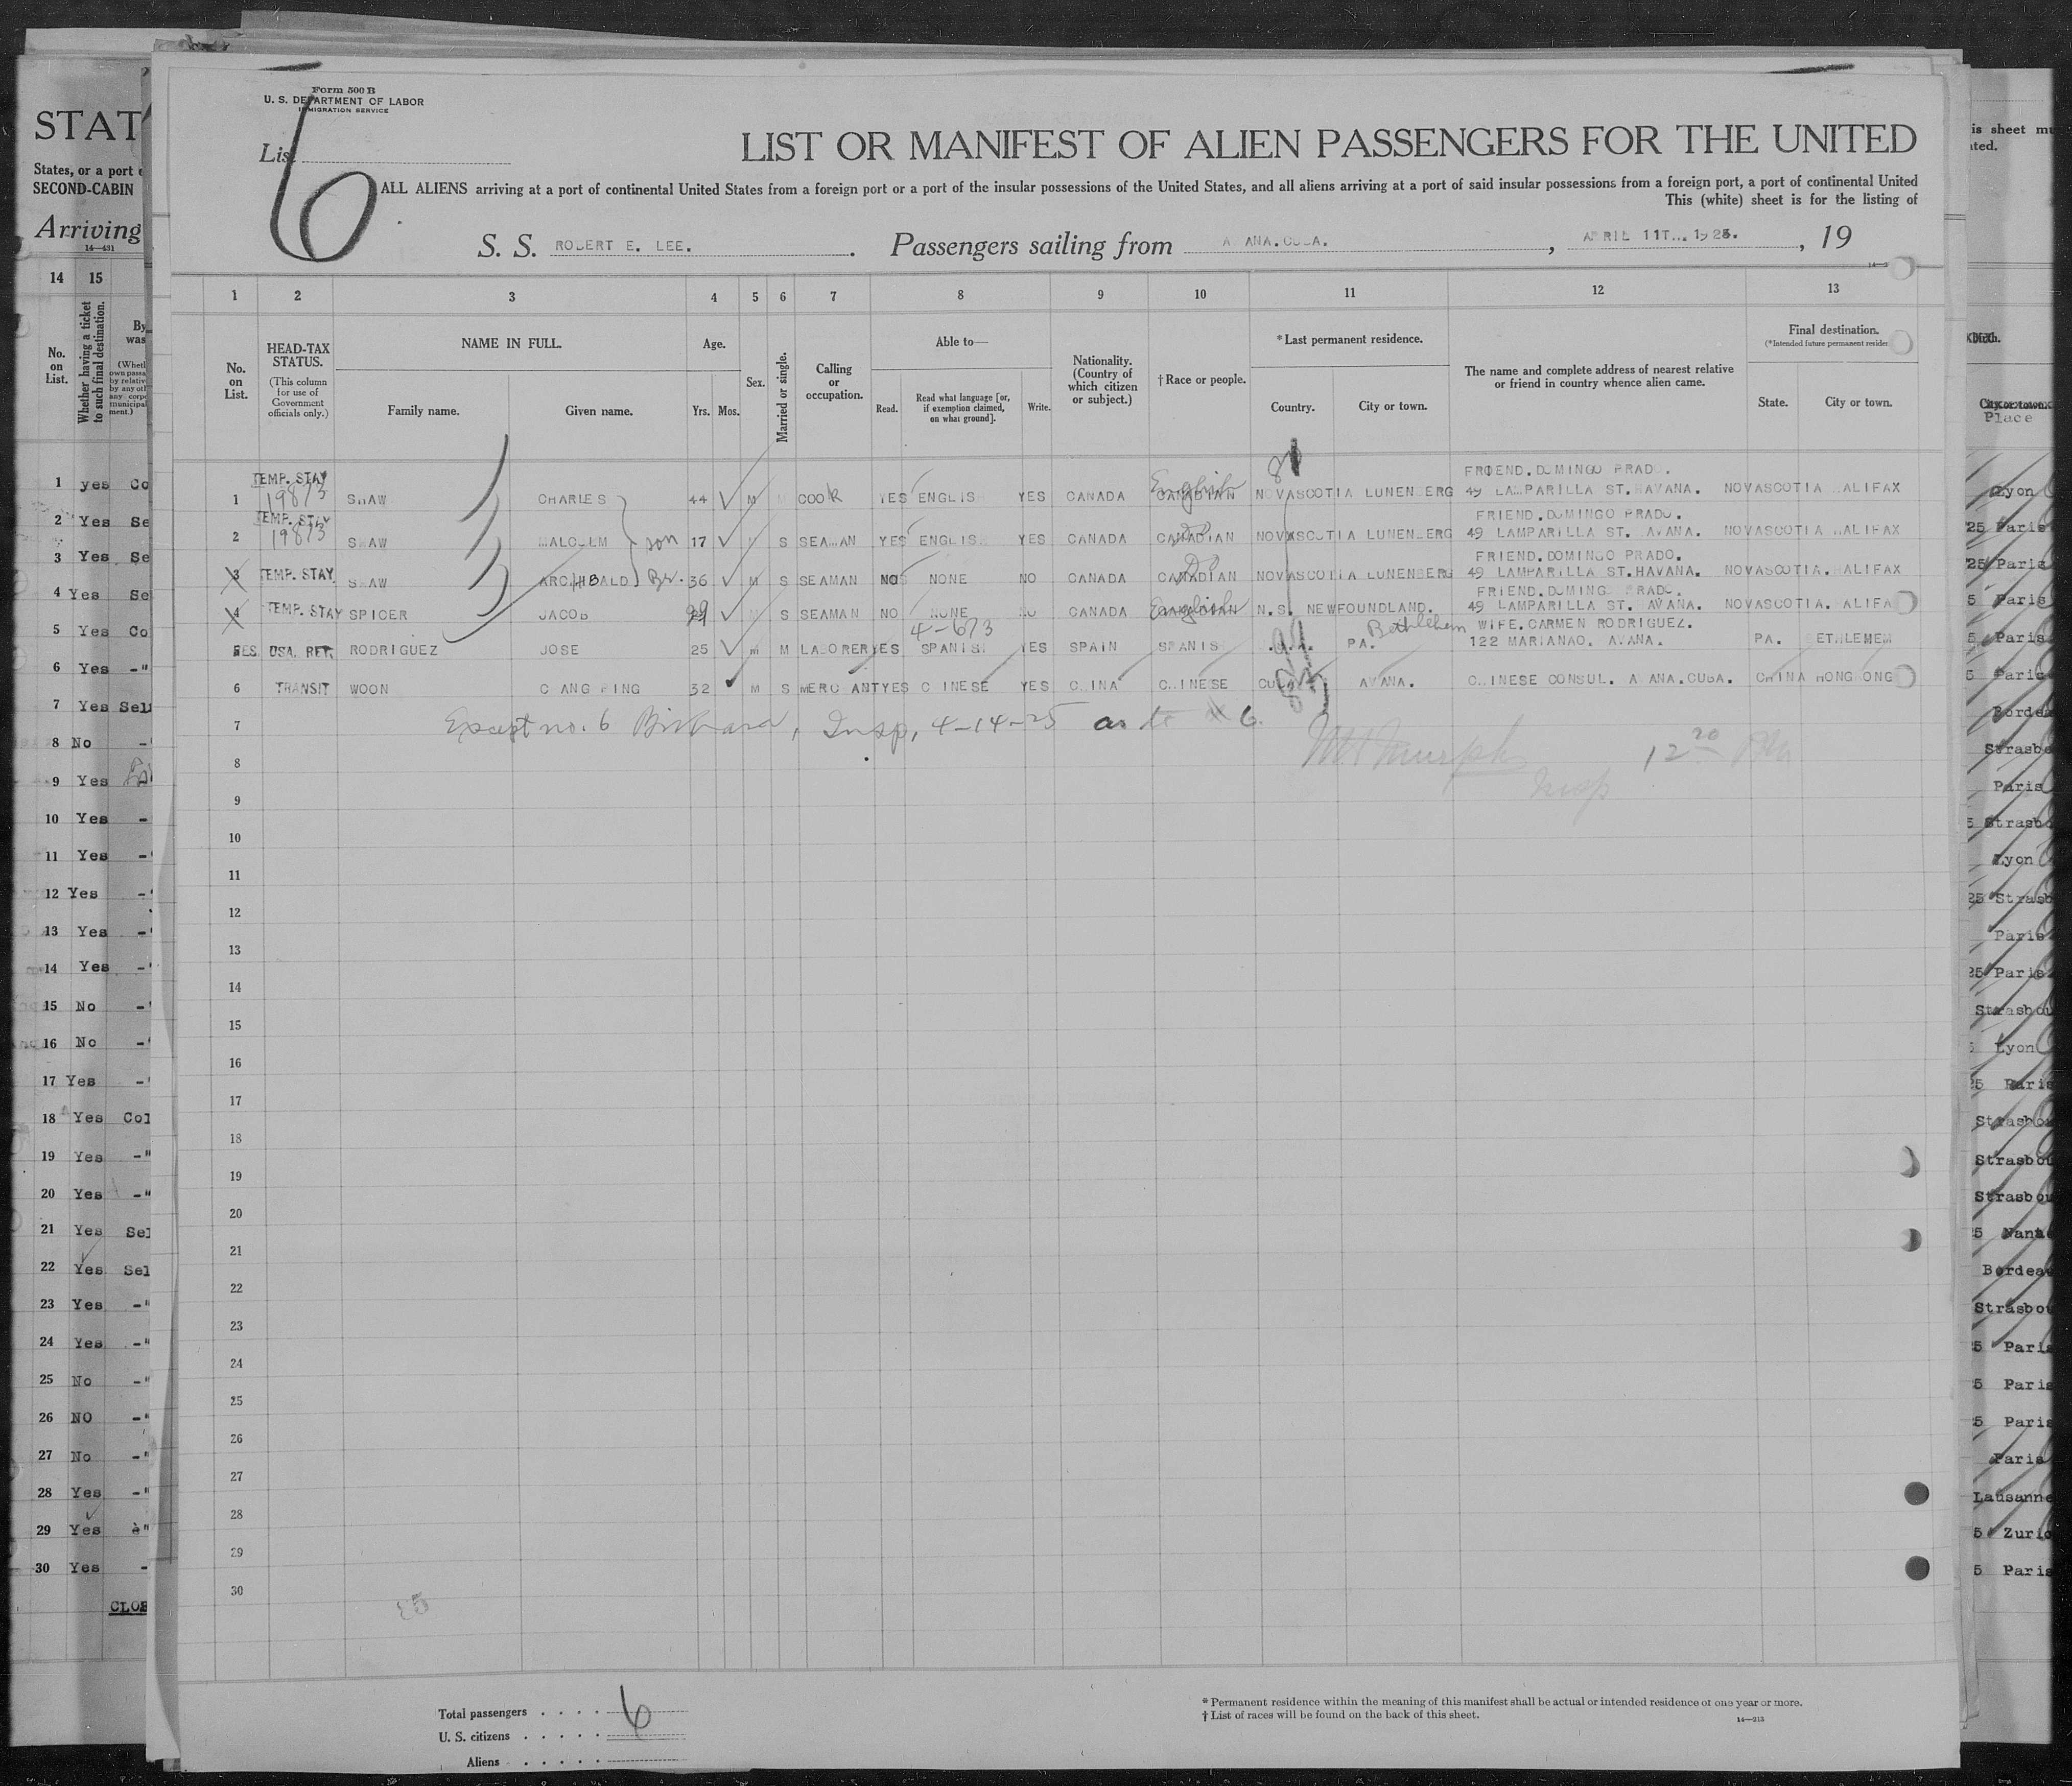 Form 500 B
U. S. DEPARTMENT OF LABOR
IMMIGRATION SERVICE
List
6
LIST OR MANIFEST OF ALIEN PASSENGERS FOR THE UNITED
ALL ALIENS arriving at a port of continental United States from a foreign port or a port of the insular possessions of the United States, and all aliens arriving at a port of said insular possessions from a foreign port, a port of continental United
This (white) sheet is for the listing of
S. S. ROBERT E. LEE. Passengers sailing from AVANA.CUBA. , APRIL 11T 1925. , 19
1 2 3 4 5 6 7 8 9 10 11 12 13
No. on List.
HEAD-TAX STATUS.
(This column for use of Government officials only.)
NAME IN FULL.
Family name. Given name.
Age.
Yrs. Mos.
Sex.
Married or single.
Calling or occupation.
Able to—
Read. Read what language [or, if exemption claimed, on what ground]. Write.
Nationality. (Country of which citizen or subject.)
† Race or people.
* Last permanent residence.
Country. City or town.
The name and complete address of nearest relative or friend in country whence alien came.
Final destination.
(*Intended future permanent residen
State. City or town.
TEMP. STAY FRIEND.DOMINGO PRADO.
1 19873 SHAW CHARLES 44 M COOK YES ENGLISH YES CANADA CANADIAN English NOVASCOTIA LUNENBERG 49 LAMPARILLA ST.HAVANA. NOVASCOTIA HALIFAX
TEMP. STAY FRIEND.DOMINGO PRADO.
2 19873 SHAW MALCOLM son 17 S SEAMAN YES ENGLISH YES CANADA CANADIAN Do NOVASCOTIA LUNENBERG 49 LAMPARILLA ST. AVANA. NOVASCOTIA HALIFAX
FRIEND.DOMINGO PRADO.
3 TEMP. STAY SHAW ARCHIBALD Br. 36 M S SEAMAN NO NONE NO CANADA CANADIAN Do NOVASCOTIA LUNENBERG 49 LAMPARILLA ST.HAVANA. NOVASCOTIA. HALIFAX
FRIEND.DOMINGO PRADO.
4 TEMP. STAY SPICER JACOB 29 M S SEAMAN NO NONE NO CANADA CANADIAN English N.S. NEWFOUNDLAND. 49 LAMPARILLA ST. AVANA. NOVASCOTIA. HALIFA
4-673 Bethlehem WIFE.CARMEN RODRIGUEZ.
5 RES. USA. RET. RODRIGUEZ JOSE 25 M M LABORER YES SPANISH YES SPAIN SPANISH PA. 122 MARIANAO. AVANA. PA. BETHLEHEM
6 TRANSIT WOON C ANG PING 32 M S MERCHANT YES C INESE YES CHINA CHINESE CUBA AVANA. CHINESE CONSUL. AVANA.CUBA. CHINA HONGKONG
7 Except no. 6 , Insp, 4-14-25 as to 6.
8 12 20
Insp
9
10
11
12
13
14
15
16
17
18
19
20
21
22
23
24
25
26
27
28
29
30
Total passengers . . . . . 6
U. S. citizens . . . . .
Aliens . . . . .
* Permanent residence within the meaning of this manifest shall be actual or intended residence of one year or more.
† List of races will be found on the back of this sheet.
14—213
STAT
States, or a port
SECOND-CABIN
Arriving
14—431
14 15
No. on List.
Whether having a ticket to such final destination.
1 yes Co
2 Yes Se
3 Yes Se
4 Yes Se
5 Yes Co
6 Yes -"
7 Yes Sel
8 No
9 Yes
10 Yes
11 Yes
12 Yes
13 Yes
14 Yes
15 No
16 No
17 Yes
18 Yes Col
19 Yes -"
20 Yes -"
21 Yes Sel
22 Yes Sel
23 Yes -"
24 Yes -"
25 No -"
26 NO -"
27 No -"
28 Yes -"
29 Yes
30 Yes
is sheet mu
ated.
Place
Lyon
25 Paris
25 Paris
5 Paris
5 Paris
5 Paris
Bordea
Strasbo
Paris
5 Strasbo
Lyon
25 Strasb
Paris
25 Paris
Strasbou
Lyon
25 Paris
Strasbou
Strasbou
Strasbou
5 Nante
Bordeau
Strasbou
5 Paris
5 Paris
5 Paris
Paris
Lausanne
5 Zuric
5 Paris